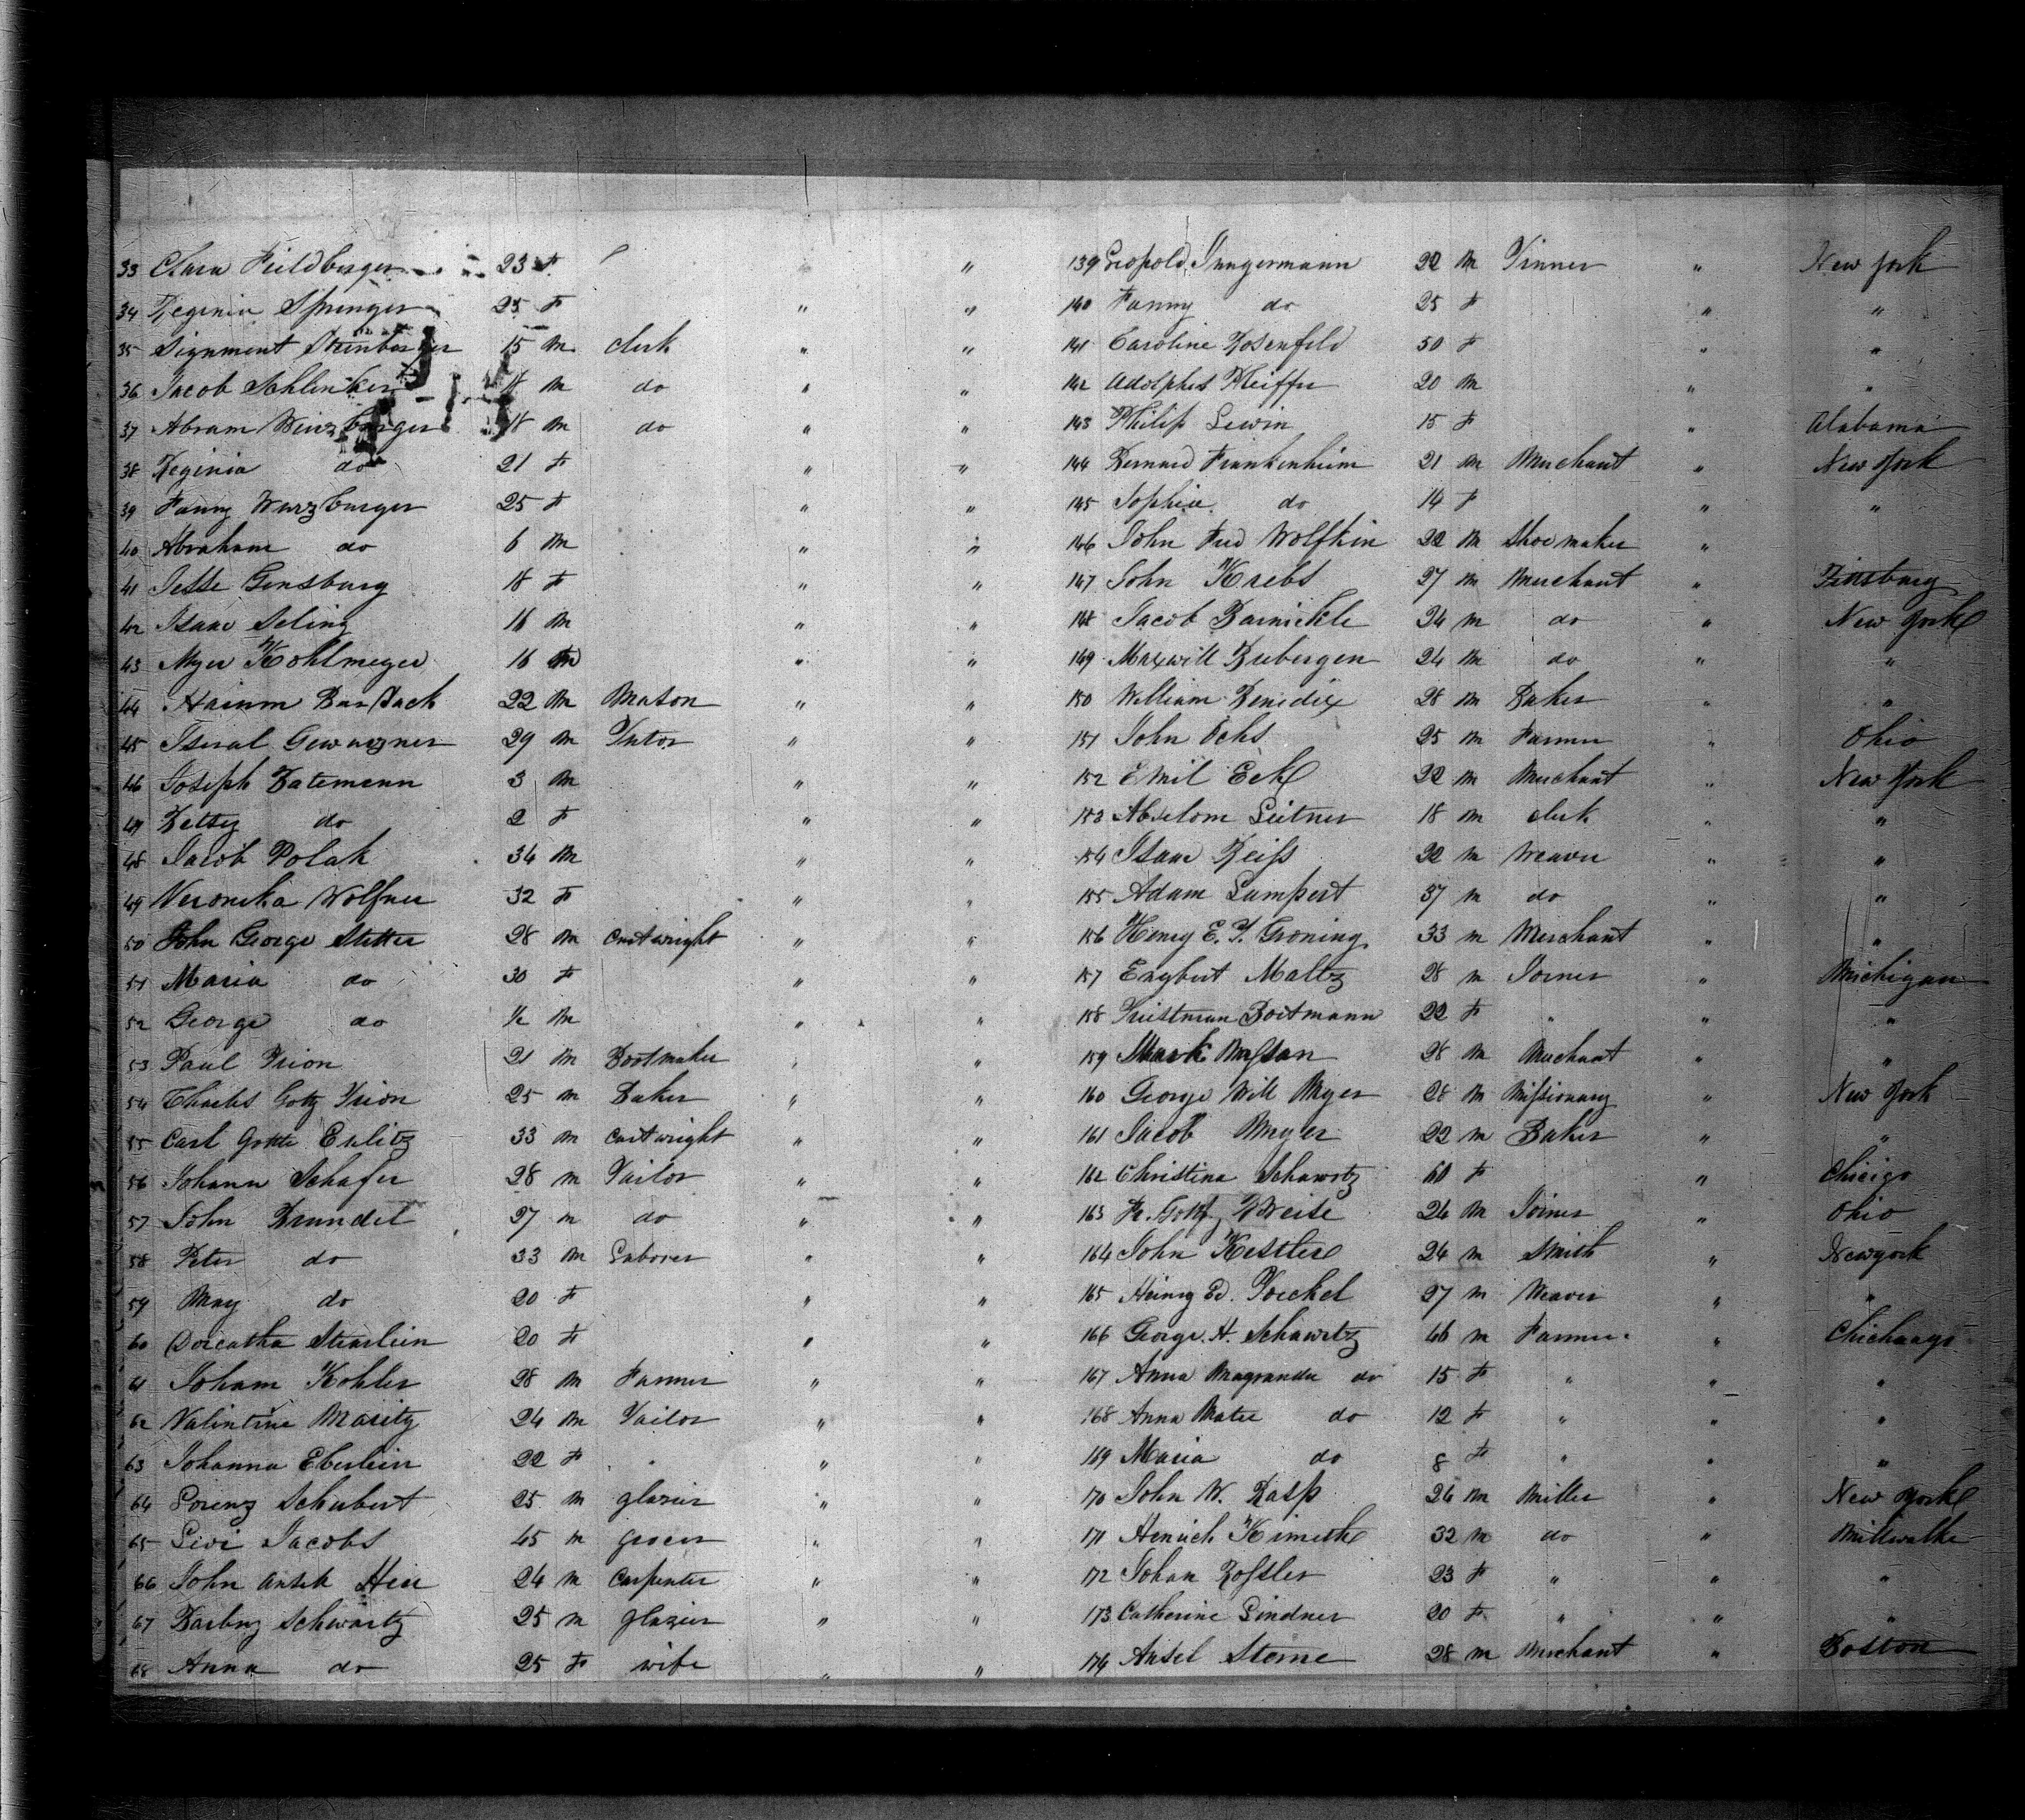 33 Clara Fieldberger 23 F "
34 Reginia Springer 25 F " "
35 Signment Steinberger 15 M clerk " "
36 Jacob Schlenker 18 M do " "
37 Abram Wurzburger 18 M do " "
38 Reginia do 21 F " "
39 Fanny Wurzburger 25 F " "
40 Abraham do 6 M " "
41 Jette Gensburg 18 F " "
42 Isaac Seling 16 M " "
43 Myer Kohlmeyer 16 M " "
44 22 M Mason " "
45 29 M " "
46 Joseph Batemann 3 M " "
47 Betsey do 2 F " "
48 Jacob Polak 34 M " "
49 Veronika Wolfner 32 F " "
50 John George Stetter 28 M Cartwright " "
51 Maria do 30 F " "
52 George do 1/2 M " "
53 Paul Irion 21 M Bootmaker " "
54 Charles Gottz Irion 25 M Baker " "
55 Carl Erlitz 33 M Cartwright " "
56 Johann Schafer 28 M Tailor " "
57 John Brundel 27 M do " "
58 Peter do 33 M Laborer " "
59 May do 20 F " "
60 Dorcatha 20 F " "
61 Joham Kohler 28 M Farmer " "
62 Valintine Maritz 24 M Tailor " "
63 Johanna Eberlein 22 F " "
64 Lorenz Schubert 25 M glazier " "
65 Levi Jacobs 45 M grocer " "
66 John 24 M Carpenter " "
67 Schwartz 25 M glazier " "
68 Anna do 25 F wife " "
139 Leopold Jungermann 22 M Tinner " New York
140 Fanny do 25 F " "
141 Caroline Rosenfeld 50 F " "
142 Adolphus Pfeiffer 20 M " "
143 Philip Lewin 15 F " Alabama
144 Bernard Frankenheim 21 M Merchant " New York
145 Sophie do 14 F " "
146 John Fred Wolfkin 22 M Shoemaker "
147 John Krebs 27 M Merchant "
148 Jacob Barnickle 24 M do " New York
149 24 M do " "
150 William Benedix 28 M Baker " "
151 John Ochs 25 M Farmer " Ohio
152 Emil Eck 22 M Merchant " New York
153 Abselom Leitner 18 M clerk " "
154 Isaac Reiss 22 M Weaver " "
155 Adam Lampert 37 M do " "
156 Henry E. T. Groning 33 M Merchant " "
157 Engbert Maltz 28 M Joiner " Michigan
158 Boitmann 22 F " " "
159 28 M Merchant " "
160 George Will Myer 28 M Missionary " New York
161 Jacob Meyer 22 M Baker " "
162 Christina Schawrtz 60 F " Chicigo
163 Weise 24 M Joiner " Ohio
164 John Kestler 24 M Smith " Newyork
165 Heinry Ed. Toeckel 27 M Weaver " "
166 George H. Schawrtz 46 M Farmer "
167 Anna do 15 F " " "
168 Anna do 12 F " " "
169 Maria do 8 F " " "
170 John W. Rasp 26 M Miller " New York
171 Heinrich 32 M do " Millwalke
172 Johan Rossler 23 F " " "
173 Catherine Lindner 20 F " " "
174 Ansel Sterne 28 M Merchant " Boston